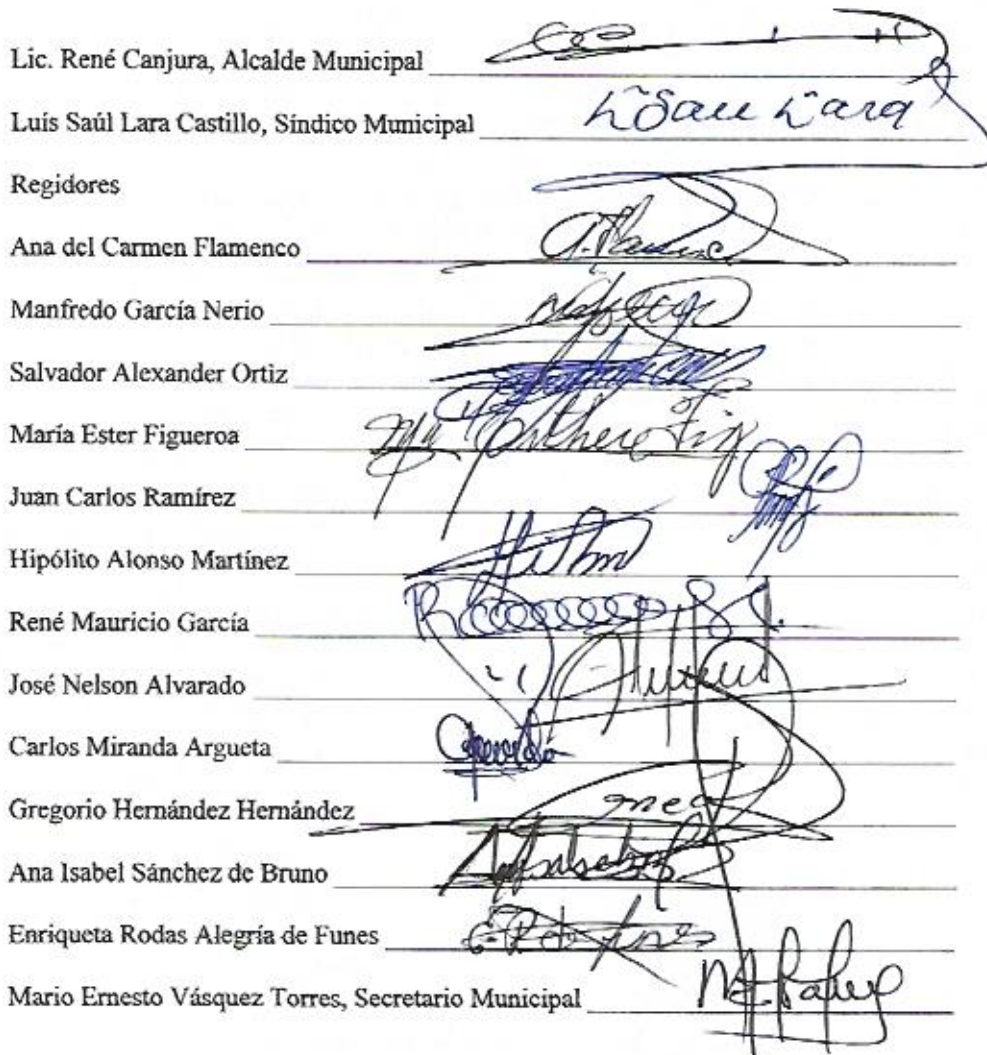 Lic. René Canjura, Alcalde Municipal
Luís Saúl Lara Castillo, Síndico Municipal L Saul Lara
Regidores
Ana del Carmen Flamenco
Manfredo García Nerio
Salvador Alexander Ortiz
María Ester Figueroa
Juan Carlos Ramírez
Hipólito Alonso Martínez
René Mauricio García
José Nelson Alvarado
Carlos Miranda Argueta
Gregorio Hernández Hernández
Ana Isabel Sánchez de Bruno
Enriqueta Rodas Alegría de Funes
Mario Ernesto Vásquez Torres, Secretario Municipal